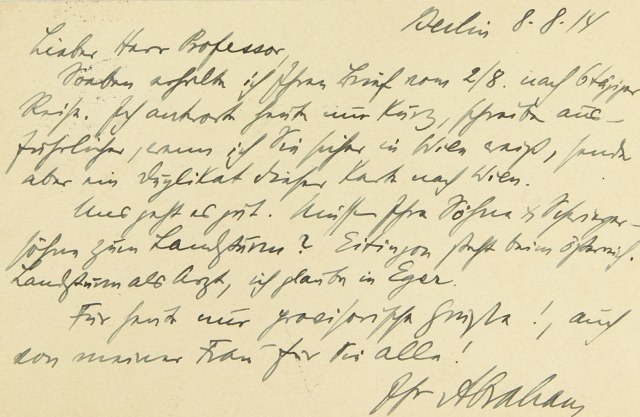 Berlin 8.8.14
Lieber Herr Professor,
Soeben erhalte ich Ihren Brief vom 2/8. nach 6tägiger
Reise. Ich antworte heute nur kurz, schreibe aus-
führlicher, wenn ich Sie sicher in Wien weiß, sende
aber ein Duplikat dieser Karte nach Wien.
Uns geht es gut. Müssen Ihre Söhne & Schwieger-
söhne zum Landsturm? Eitingon steht beim österreich.
Landsturm als Arzt, ich glaube in Eger.
Für heute nur provisorische Grüße!, auch
von meiner Frau für Sie alle!
Ihr Abraham